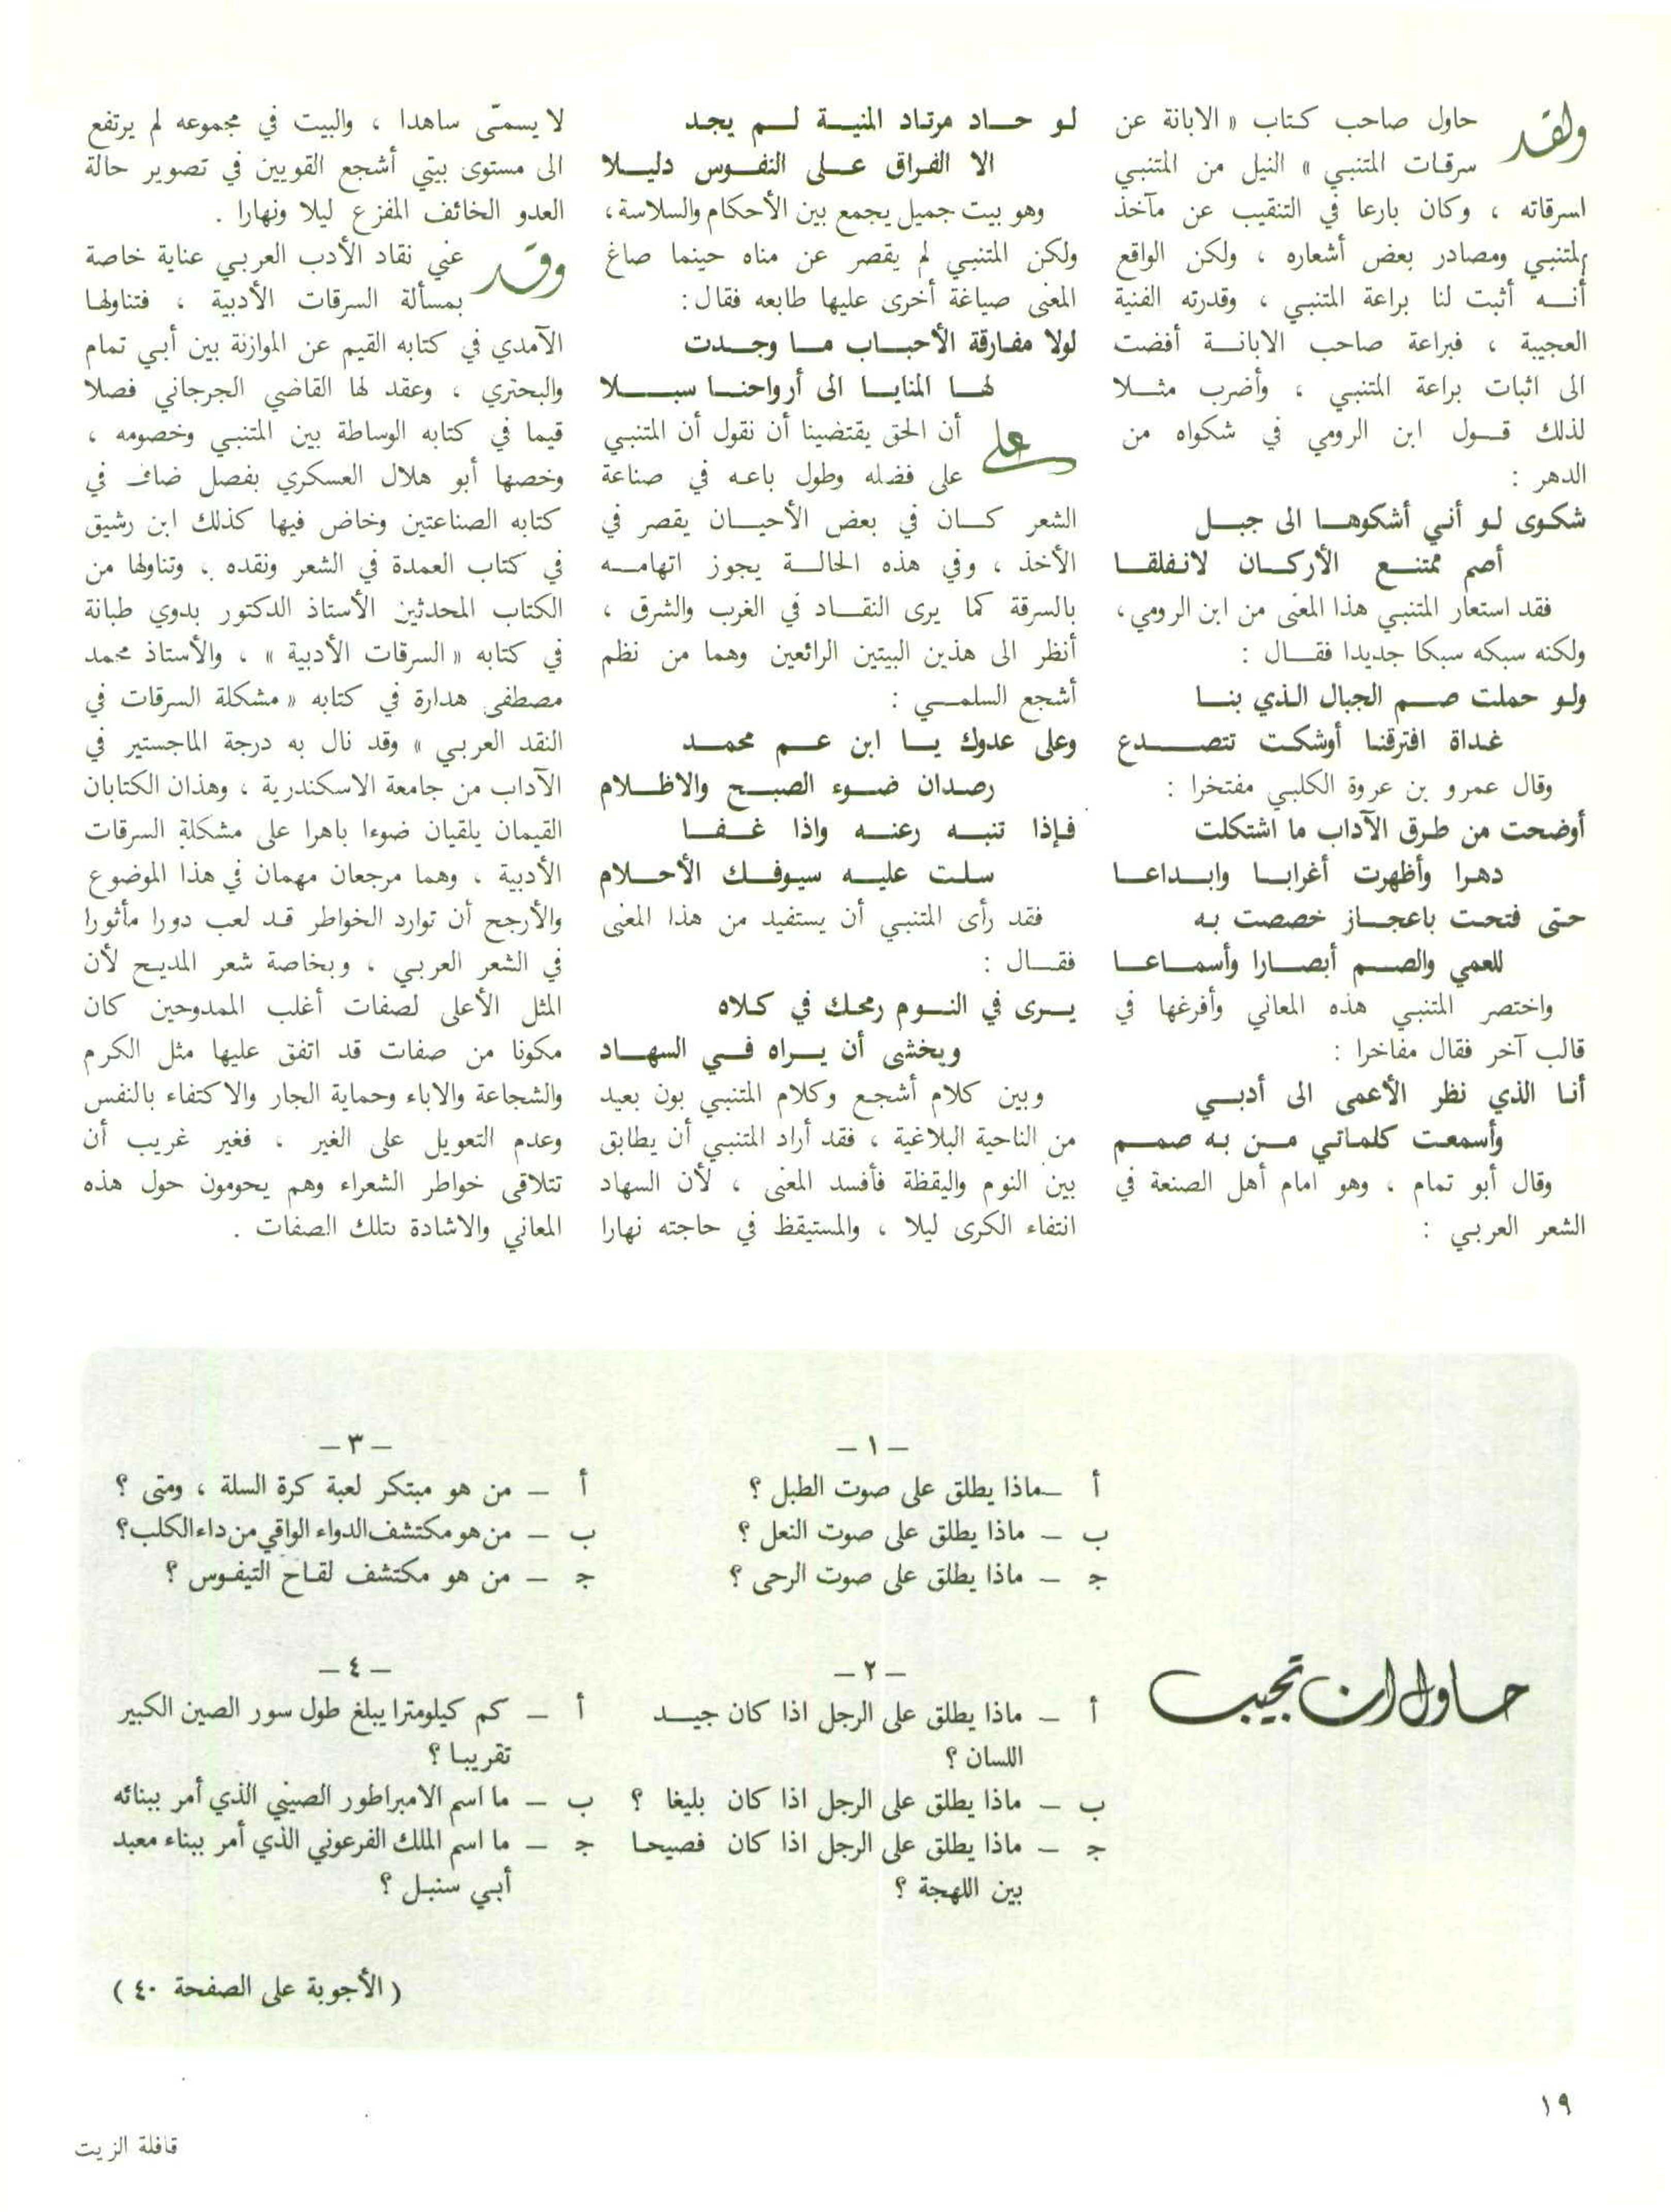 ولقد حاول صاحب كتاب « الابانة عن
سرقات المتنبي » النيل من المتنبي
لسرقاته ، وكان بارعا في التنقيب عن مآخذ
المتنبي ومصادر بعض أشعاره ، ولكن الواقع
أنه أثبت لنا براعة المتنبي ، وقدرته الفنية
العجيبة ، فبراعة صاحب الابانة أفضت
الى اثبات براعة المتنبي ، وأضرب مثلا
لذلك قول ابن الرومي في شكواه من
الدهر :
شكوى لو أني أشكوها الى جبل
أصم ممتنع الأركان لانفلقا
فقد استعار المتنبي هذا المعنى من ابن الرومي،
ولكنه سبكه سبكا جديدا فقال :
ولو حملت صم الجبال الذي بنا
غداة افترقنا أوشكت تتصدع
وقال عمرو بن عروة الكلبي مفتخرا :
أوضحت من طرق الآداب ما اشتكلت
دهرا وأظهرت أغرابا وابداعا
حتى فتحت باعجاز خصصت به
للعمي والصم أبصارا وأسماعا
واختصر المتنبي هذه المعاني وأفرغها في
قالب آخر فقال مفاخرا :
أنا الذي نظر الأعمى الى أدبي
وأسمعت كلماتي من به صمم
وقال أبو تمام ، وهو امام أهل الصنعة في
الشعر العربي :
لو حاد مرتاد المنية لم يجد
الا الفراق على النفوس دليلا
وهو بيت جميل يجمع بين الأحكام والسلاسة،
ولكن المتنبي لم يقصر عن مناه حينما صاغ
المعنى صياغة أخرى عليها طابعه فقال :
لولا مفارقة الأحباب ما وجدت
لها المنايا الى أرواحنا سبلا
على أن الحق يقتضينا أن نقول أن المتنبي
على فضله وطول باعه في صناعة
الشعر كان في بعض الأحيان يقصر في
الأخذ ، وفي هذه الحالة يجوز اتهامه
بالسرقة كما يرى النقاد في الغرب والشرق ،
أنظر الى هذين البيتين الرائعين وهما من نظم
أشجع السلمي :
وعلى عدوك يا ابن عم محمد
رصدان ضوء الصبح والاظلام
فإذا تنبه رعنه واذا غفا
سلت عليه سيوفك الأحلام
فقد رأى المتنبي أن يستفيد من هذا المعنى
فقال :
يرى في النوم رمحك في كلاه
ويخشى أن يراه في السهاد
وبين كلام أشجع وكلام المتنبي بون بعيد
من الناحية البلاغية ، فقد أراد المتنبي أن يطابق
بين النوم واليقظة فأفسد المعنى ، لأن السهاد
انتفاء الكرى ليلا ، والمستيقظ في حاجته نهارا
لا يسمّى ساهدا ، والبيت في مجموعه لم يرتفع
الى مستوى بيتي أشجع القويين في تصوير حالة
العدو الخائف المفزع ليلا ونهارا .
وقد عني نقاد الأدب العربي عناية خاصة
بمسألة السرقات الأدبية ، فتناولها
الآمدي في كتابه القيم عن الموازنة بين أبي تمام
والبحتري ، وعقد لها القاضي الجرجاني فصلا
قيما في كتابه الوساطة بين المتنبي وخصومه ،
وخصها أبو هلال العسكري بفصل ضاف في
كتابه الصناعتين وخاض فيها كذلك ابن رشيق
في كتاب العمدة في الشعر ونقده ، وتناولها من
الكتاب المحدثين الأستاذ الدكتور بدوي طبانة
في كتابه « السرقات الأدبية » ، والأستاذ محمد
مصطفى هدارة في كتابه « مشكلة السرقات في
النقد العربي » وقد نال به درجة الماجستير في
الآداب من جامعة الاسكندرية ، وهذان الكتابان
القيمان يلقيان ضوءا باهرا على مشكلة السرقات
الأدبية ، وهما مرجعان مهمان في هذا الموضوع
والأرجح أن توارد الخواطر قد لعب دورا مأثورا
في الشعر العربي ، وبخاصة شعر المديح لأن
المثل الأعلى لصفات أغلب الممدوحين كان
مكونا من صفات قد اتفق عليها مثل الكرم
والشجاعة والاباء وحماية الجار والاكتفاء بالنفس
وعدم التعويل على الغير ، فغير غريب أن
تتلاقى خواطر الشعراء وهم يحومون حول هذه
المعاني والاشادة بتلك الصفات .
حاول ان تجيب
– ١ –
أ – ماذا يطلق على صوت الطبل ؟
ب – ماذا يطلق على صوت النعل ؟
ج – ماذا يطلق على صوت الرحى ؟
– ٢ –
أ – ماذا يطلق على الرجل اذا كان جيد
اللسان ؟
ب – ماذا يطلق على الرجل اذا كان بليغا ؟
ج – ماذا يطلق على الرجل اذا كان فصيحا
بين اللهجة ؟
– ٣ –
أ – من هو مبتكر لعبة كرة السلة ، ومتى ؟
ب – من هو مكتشف الدواء الواقي من داء الكلب؟
ج – من هو مكتشف لقاح التيفوس ؟
– ٤ –
أ – كم كيلومترا يبلغ طول سور الصين الكبير
تقريبا ؟
ب – ما اسم الامبراطور الصيني الذي أمر ببنائه
ج – ما اسم الملك الفرعوني الذي أمر ببناء معبد
أبي سنبل ؟
( الأجوبة على الصفحة ٤٠ )
١٩
قافلة الزيت